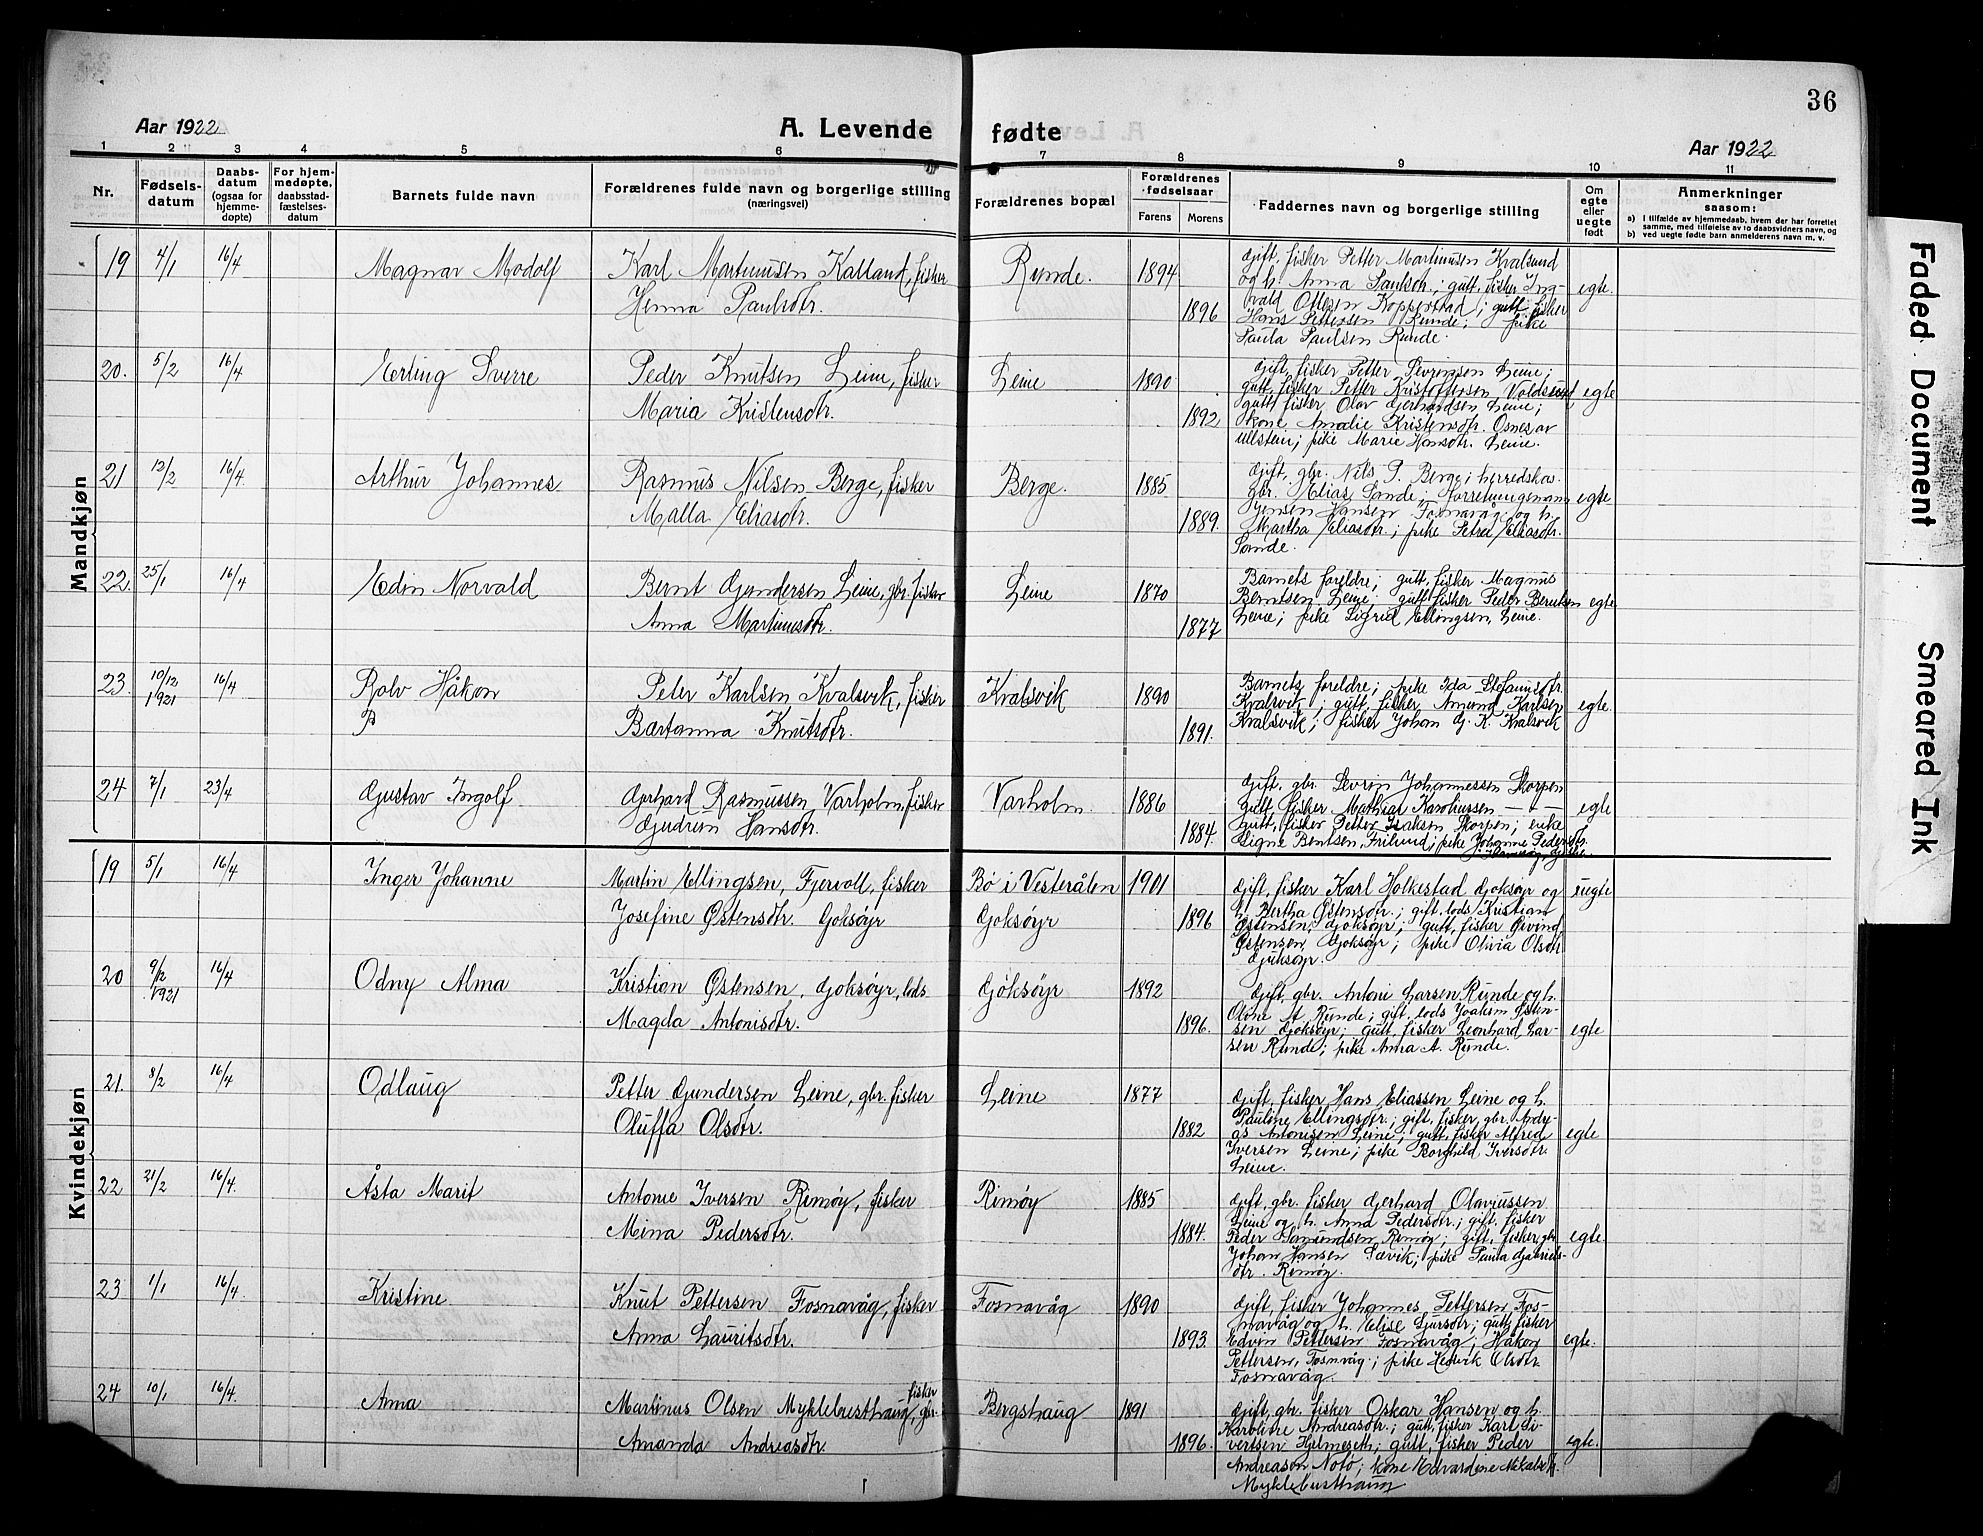 36
Aar 1922
A. Levende fødte
Aar 1922
1 2 3 4 5 6 7 8 9 10 11
Nr.
Fødsels-
datum
Daabs-
datum
(ogsaa for
hjemme-
døpte)
For hjem-
medøpte,
daabsstad-
fæstelses-
datum
Barnets fulde navn
Forældrenes fulde navn og borgerlige stilling
(næringsvei)
Forældrenes bopæl
Forældrenes
fødselsaar
Farens Morens
Faddernes navn og borgerlige stilling
Om
egte
eller
uegte
født
Anmerkninger
saasom:
a) I tilfælde av hjemmedaab, hvem der har forrettet
samme, med tilføielse av to daabsvidners navn, og
b) ved uegte fødte barn anmelderens navn m. v.
Mandkjøn
19 4/1 16/4 Magnar Modolf
Karl Martinusen Kalland, fisker
Henna Paulsdtr.
Runde. 1894
1896
Gift, fisker Petter Martinusen Kvalsund
og h. Anna Paulsdtr.; gutt, fisker Ing-
vald Ottesen Kopperstad; gutt, fisker
Hans Pettersen Runde; pike
Paula Paulsen Runde.
egte.
20. 5/2 16/4 Erling Sverre
Peder Knutsen Leine, fisker
Maria Kristensdtr.
Leine 1890
1892
Gift, fisker Petter Severinsen Leine;
gutt, fisker Petter Kristoffersen Voldsund
gutt, fisker Olav Gerhardsen Leine;
kone Amalie Kristensdtr. Osnes av
Ullstein; pike Marie Hansdtr. Leine.
egte
21 12/2 16/4 Arthur Johannes
Rasmus Nilsen Berge, fisker
Malla Eliasdtr.
Berge. 1885
1889.
Gift, gbr. Nils P. Berge; herredskas.
gbr. Elias Sande; forretningsmann
Jensen Hansen Fosnavåg og h.
Martha Eliasdtr.; pike Petra Eliasdtr.
Sande.
egte
22. 25/1 16/4 Edin Norvald
Bernt Gundersen Leine, gbr. fisker
Anna Martinusdtr.
Leine 1870
1877
Barnets foreldre; gutt, fisker Magnus
Berntsen Leine, gutt, fisker Peder Berntsen
Leine; pike Sigrid Ellingsen, Leine.
egte
23. 10/12 1921 16/4 Rolv Håkon
P
Peter Karlsen Kvalsvik, fisker
Bertanna Knutsdtr.
Kvalsvik 1890
1891.
Barnets foreldre; pike Ida Stefansdtr.
Kvalsvik; gutt, fisker Amund Karlsen
Kvalsvik; fisker Johan G. K. Kvalsvik
egte.
24 7/1 23/4 Gustav Ingolf
Gerhard Rasmussen Varholm, fisker
Gudrun Hansdtr.
Varholm. 1886
1884.
Gift, gbr. Severin Johannessen Skorpen
gutt fisker Mathias Karolussen — „ —
gutt, fisker Petter Isaksen Skorpen; enke
Signe Bentsen, Frilund; pike Johanne Pedersdtr.
egte
Kvindekjøn
19 5/1 16/4 Inger Johanne
Martin Ellingsen, Fjervoll, fisker
Josefine Østensdtr. Goksøyr
Bø i Vesterålen 1901
Goksøyr 1896
Gift, fisker Karl Holkestad Goksøyr og
h. Bertha Østensdtr.; gift, lods Kristian
Østensen, Goksøyr; gutt, fisker Øivind
Østensen, Goksøyr; pike Olivia Olsdtr
Goksøyr.
uegte
20 9/12 1921 16/4 Odny Alma
Kristian Østensen, Goksøyr, lods
Magda Antonisdtr.
Goksøyr 1892
1896.
Gift, gbr. Antoni Larsen Runde og h.
Oline A. Runde; gift, lods Joakim Østen-
sen Goksøyr; gutt, fisker Leonhard Lar-
sen Runde; pike Anna A. Runde.
egte
21. 8/2 16/4 Odlaug
Petter Gundersen Leine, gbr. fisker
Oluffa Olsdtr.
Leine 1877
1882
Gift, fisker Hans Eliassen Leine og h.
Pauline Ellingsdtr.; gift, fisker, gbr. Andre-
as Antonisen Leine; gutt, fisker Alfred
Iversen Leine; pike Borghild Iversdtr.
Leine.
egte
22 21/2 16/4. Åsta Marit
Antonie Iversen Remøy, fisker
Mina Pedersdtr.
Remøy 1885
1884.
Gift, gbr. fisker Gerhard Olaviussen
Leine og h. Anna Pedersdtr.; gift, fisker
Peder Samundsen Remøy; gift, fisker, gbr
Johan Hansen Sævik; pike Paula Gabriels-
dtr. Remøy.
egte.
23 1/1 16/4. Kristine
Knut Pettersen Fosnavåg, fisker
Anna Lauritsdtr.
Fosnavåg 1890
1893.
Gift, fisker Johannes Pettersen Fos-
navåg og h. Elise Sjursdtr; gutt, fisker
Edvin Pettersen Fosnavåg; Håkon
Pettersen, Fosnvåg; pike Hedvik Olsdtr
Fosnavåg.
egte.
24 10/1 16/4. Anna
Martinus Olsen Myklebusthaug, gbr. fisker
Amanda Andreasdtr.
Bergshaug 1891
1896.
Gift, gbr. fisker Oskar Hansen og h.
Karoline Andreasdtr.; gutt, fisker Karl Si-
vertsen Hjelmeseth; gutt, fisker Peder
Andreasen Notø; kone Edvardine Mikalsdtr.
Myklebusthaug
egte.
Faded Document
Smeared Ink